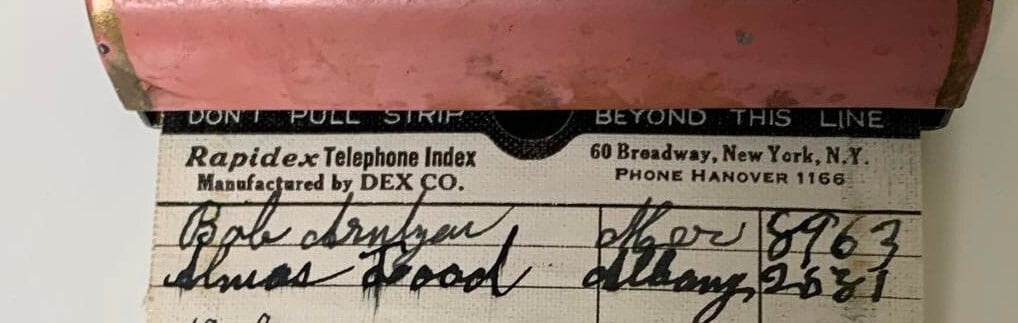 DON'T PULL STRIP BEYOND THIS LINE
Rapidex Telephone Index 60 Broadway, New York, N.Y.
Manufactured by DEX CO. PHONE HANOVER 1166
Bob Mer 8963
Almas Food Albany 2631